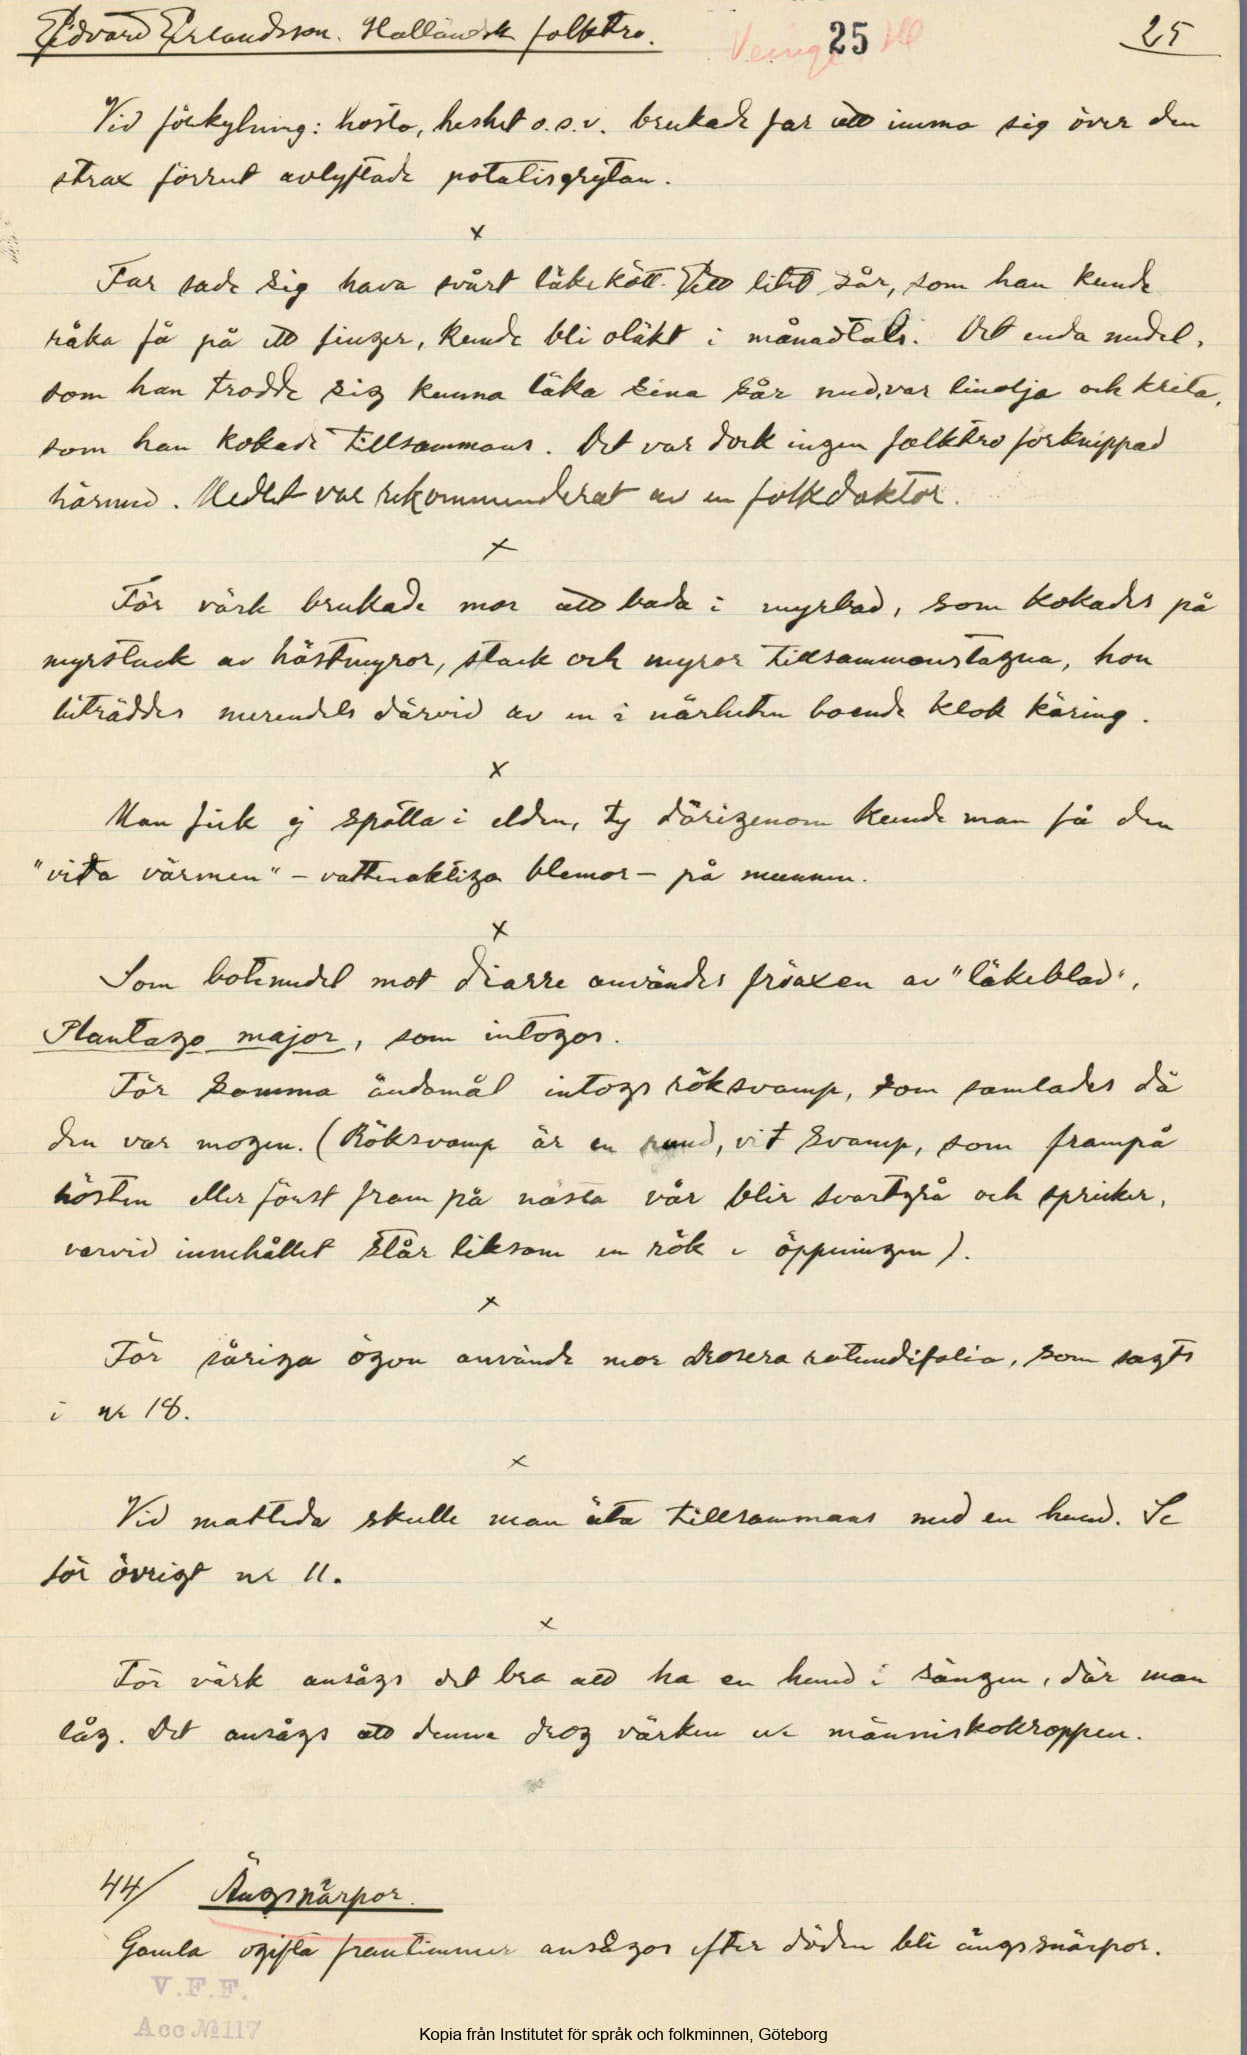 Edvard Erlandsson. Halländsk folktro. 25 25
Vid förkylning: hosta, heshet o.s.v. brukade far att imma sig över den
strax förrut avlyftade potatisgrytan.
x
Far sade sig hava svårt läkekött. Ett litet sår, som han kunde
råka få på ett finger, kunde bli oläkt i månadtals. Det enda medel,
som han trodde sig kunna läka sina sår med, var linolja och krita,
som han kokade tillsammans. Det var dock ingen folktro förknippad
härmed. Medlet var rekommenderat av en folkdoktor.
x
För värk brukade mor att bada i myrbad, som kokades på
myrstack av hästmyror, stack och myror tillsammanstagna, hon
biträddes merendels därvid av en i närheten boende klok käring.
x
Man fick ej spotta i elden, ty därigenom kunde man få den
"vita värmen" – vattenaktiga blemor – på munnen.
x
Som botemedel mot diarre användes fröaxen av "läkeblad",
Plantago major, som intogos.
För samma ändamål intogs röksvamp, som samlades då
den var mogen. (Röksvamp är en rund, vit svamp, som frampå
hösten eller först fram på nästa vår blir svartgrå och spricker,
varvid innehållet står liksom en rök i öppningen).
x
För såriga ögon använde mor Drosera rotundifolia, som sagts
i nr 18.
x
Vid mattida skulle man äta tillsammans med en hund. Se
för övrigt nr 11.
x
För värk ansågs det bra att ha en hund i sängen, där man
låg. Det ansågs att denna drog värken ur människokroppen.
44/ Ängsnärpor.
Gamla ogifta fruntimmer ansågos efter döden bli ängsnärpor.
V.F.F.
Acc № 117
Kopia från Institutet för språk och folkminnen, Göteborg